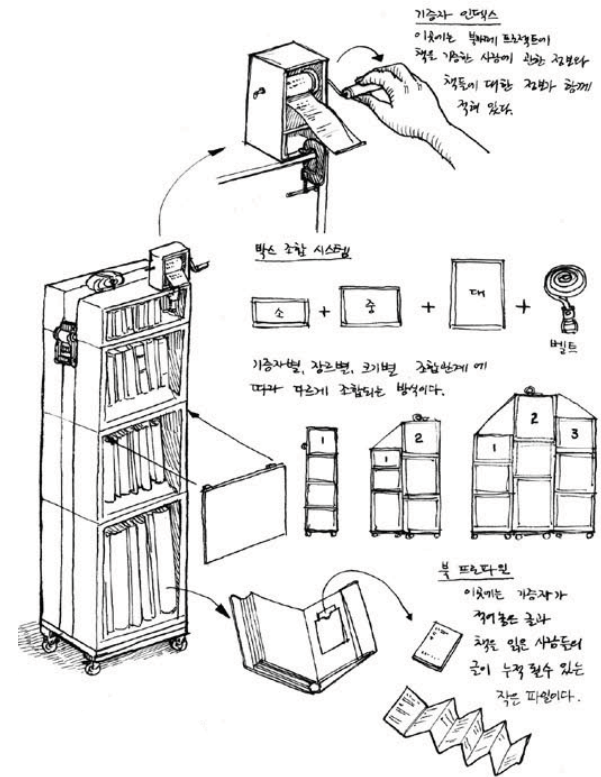 기증자 인덱스
이곳에는 북하페 프로젝트에
책을 기증한 사람에 관한 정보와
책들에 대한 정보가 함께
적혀 있다.
박스 조합 시스템
소 + 중 + 대 +
벨트
기증자별, 장르별, 크기별 조합단계에
따라 다르게 조합되는 방식이다.
1
1 2
1 2 3
북 프로파일
이곳에는 기증자가
적어놓은 글과
책을 읽은 사람들의
글이 누적 될수 있는
작은 파일이다.